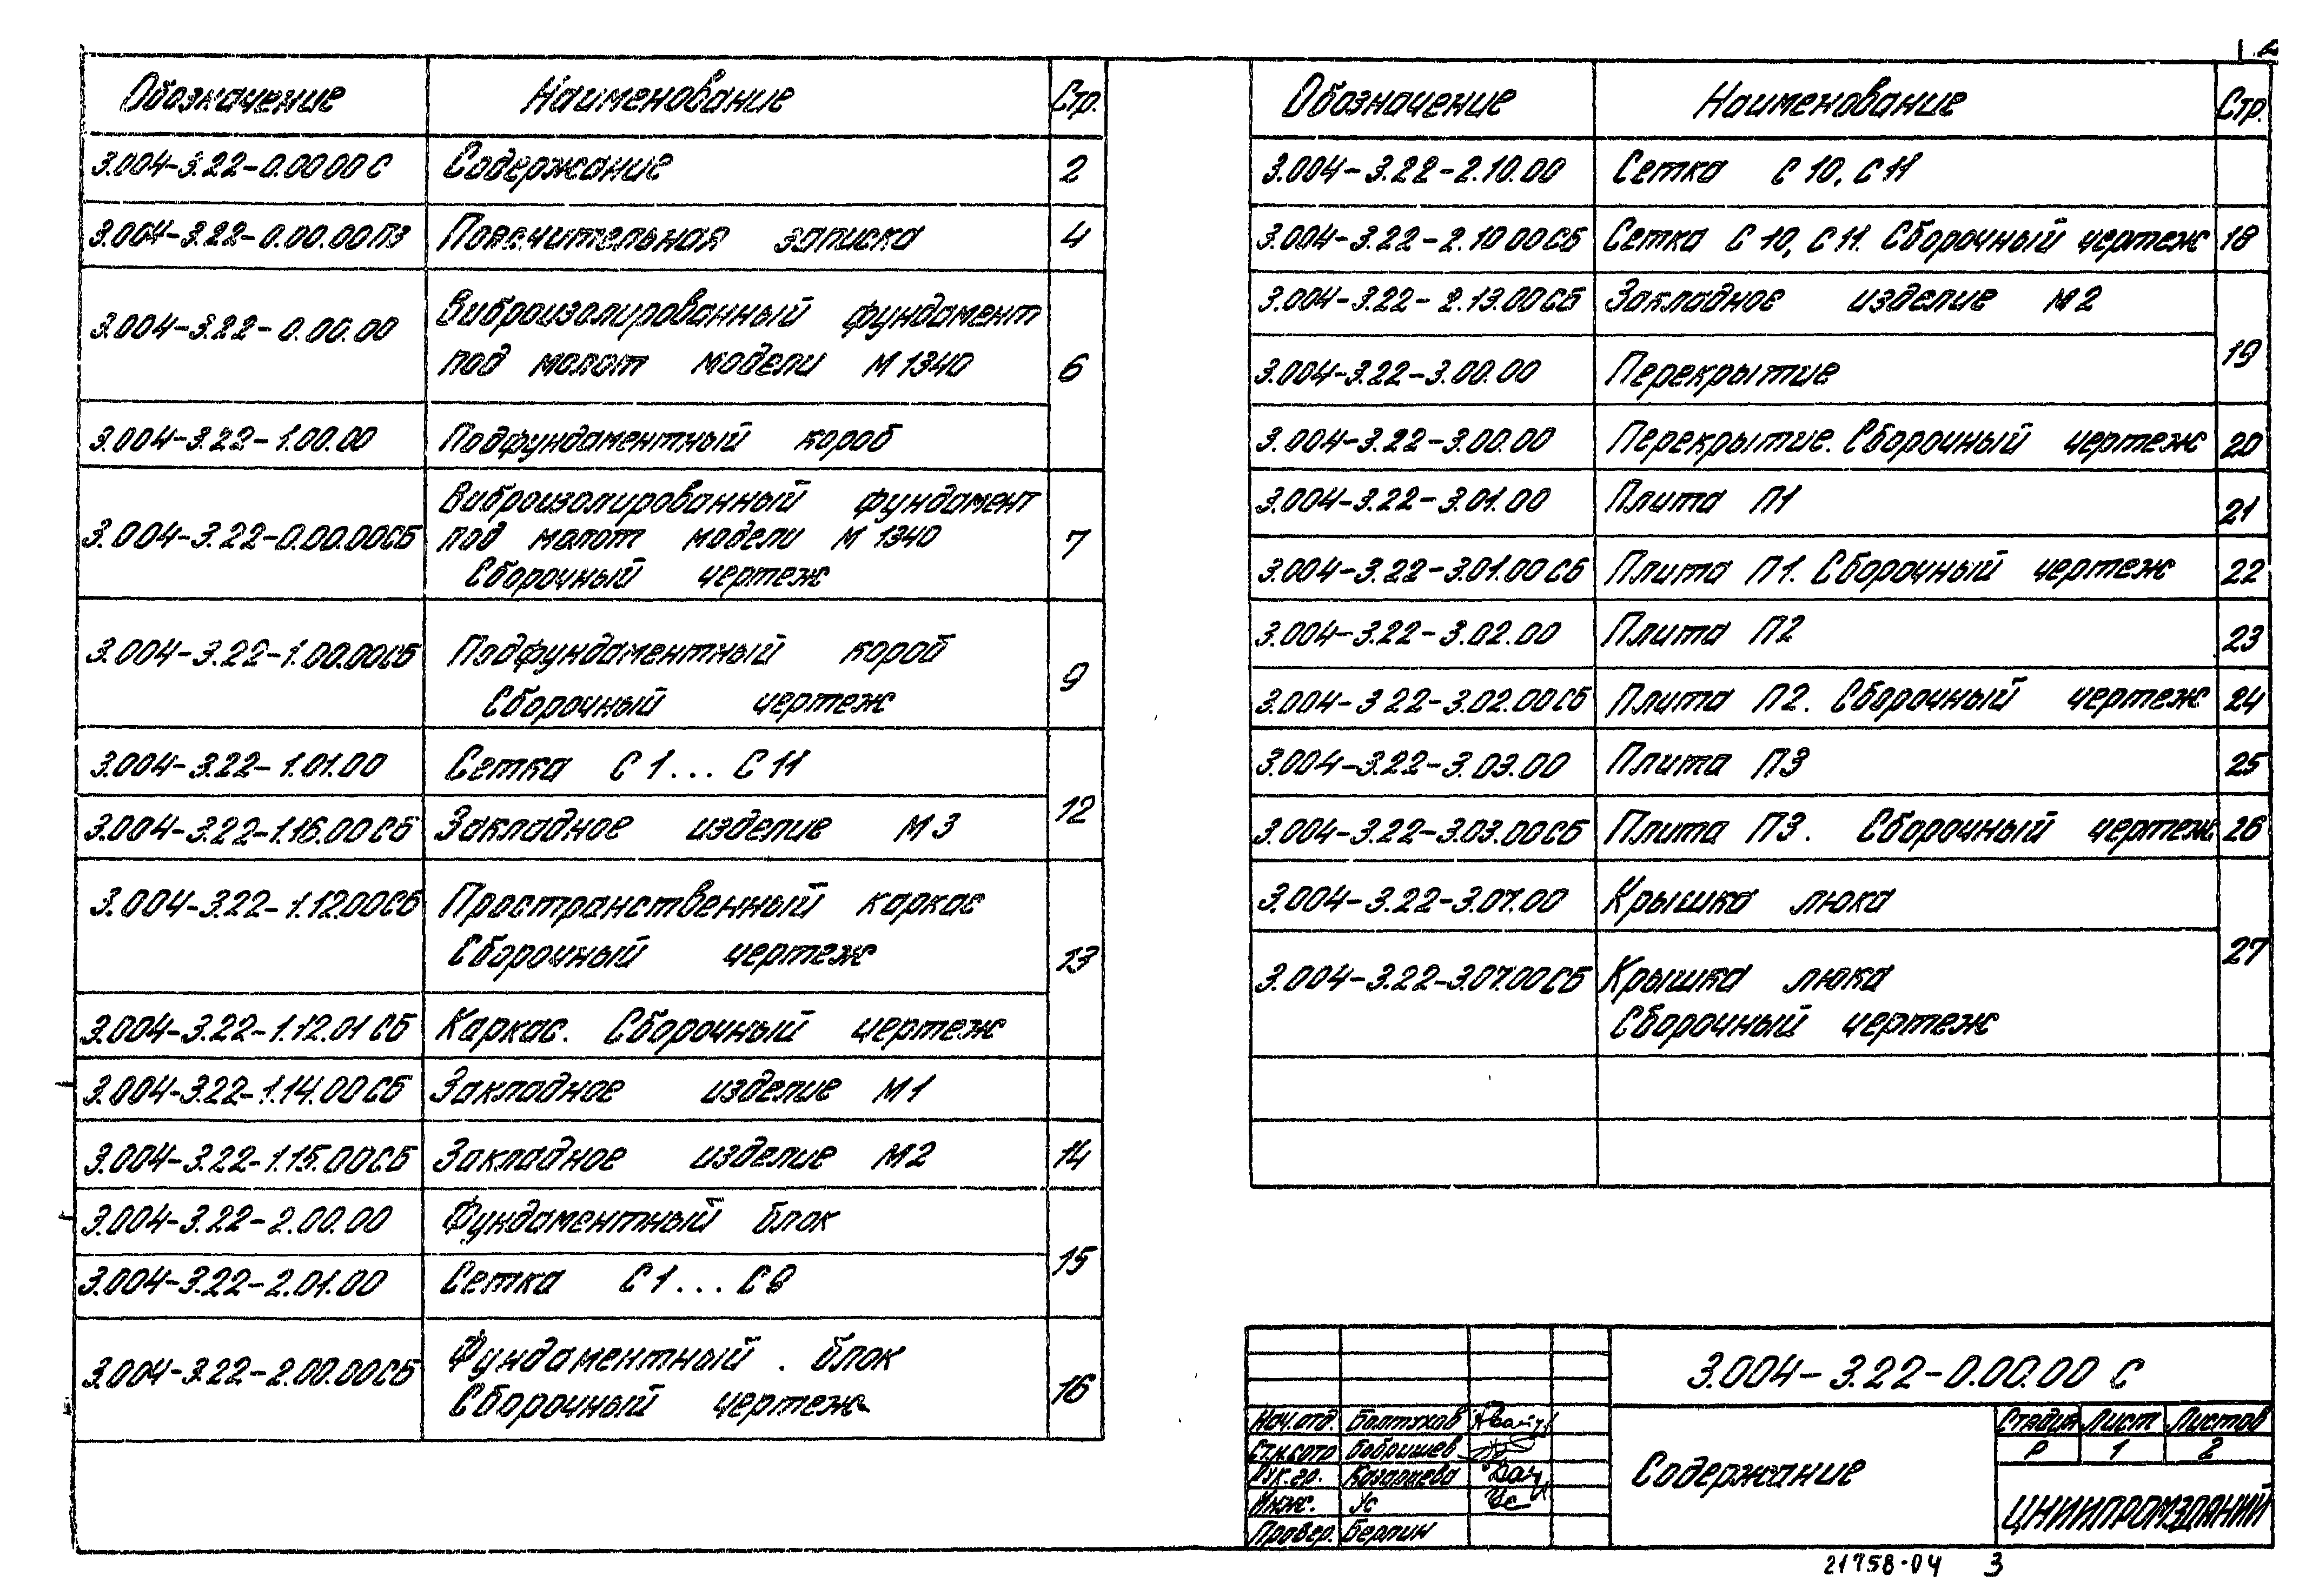 Обозначение Наименование Стр.
3.004-3.22-0.00.00 С Содержание 2
3.004-3.22-0.00.00ПЗ Пояснительная записка 4
3.004-3.22-0.00.00 Виброизолированный фундамент
под молот модели М 1340 6
3.004-3.22-1.00.00 Подфундаментный короб
Виброизолированный фундамент
3.004-3.22-0.00.00СБ под молот модели М 1340 7
Сборочный чертеж
3.004-3.22-1.00.00СБ Подфундаментный короб 9
Сборочный чертеж
3.004-3.22-1.01.00 Сетка С 1... С 11
12
3.004-3.22-1.16.00СБ Закладное изделие М 3
3.004-3.22-1.12.00СБ Пространственный каркас
Сборочный чертеж 13
3.004-3.22-1.12.01 СБ Каркас. Сборочный чертеж
3.004-3.22-1.14.00СБ Закладное изделие М 1
3.004-3.22-1.15.00СБ Закладное изделие М 2 14
3.004-3.22-2.00.00 Фундаментный блок
15
3.004-3.22-2.01.00 Сетка С 1... С 9
3.004-3.22-2.00.00СБ Фундаментный блок 16
Сборочный чертеж
Обозначение Наименование Стр.
3.004-3.22-2.10.00 Сетка С 10, С 11
3.004-3.22-2.10 00СБ Сетка С 10, С 11. Сборочный чертеж 18
3.004-3.22-2.13.00СБ Закладное изделие М 2
19
3.004-3.22-3.00.00 Перекрытие
3.004-3.22-3.00.00 Перекрытие. Сборочный чертеж 20
3.004-3.22-3.01.00 Плита П1 21
3.004-3.22-3.01.00СБ Плита П1. Сборочный чертеж 22
3.004-3.22-3.02.00 Плита П2 23
3.004-3 22-3.02.00СБ Плита П2. Сборочный чертеж 24
3.004-3.22-3.03.00 Плита П3 25
3.004-3.22-3.03.00СБ Плита П3. Сборочный чертеж 26
3.004-3.22-3.07.00 Крышка люка
27
3.004-3.22-3.07.00СБ Крышка люка
Сборочный чертеж
3.004-3.22-0.00.00 С
Нач.отд. Болтухов
Ст.н.сотр Бобрышев
Рук.гр.
Инж. Ус Ус
Провер. Берлин
Содержание
Стадия Лист Листов
Р 1 2
ЦНИИПРОМЗДАНИЙ
21758-04 3